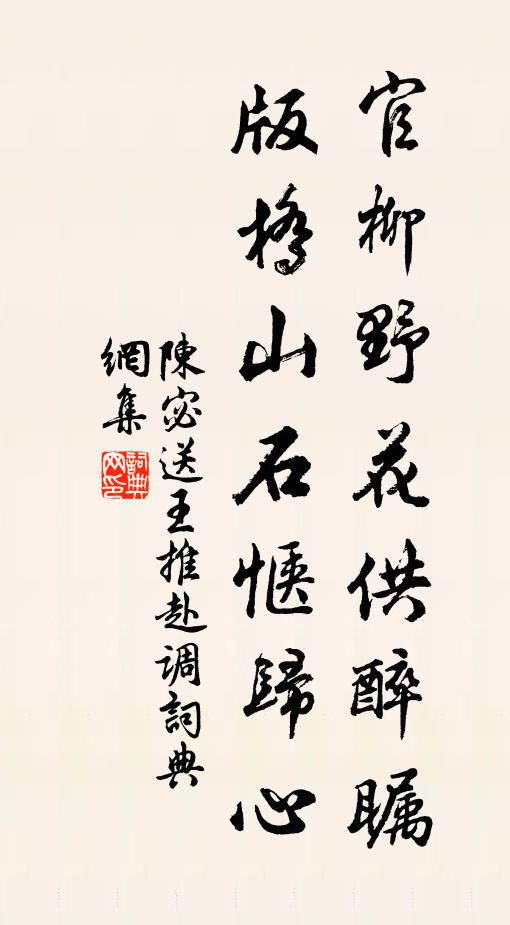 官柳野花供醉瞩
版橋山石惬歸心
陳宓送王推赴调詞典
網集
詞典網印